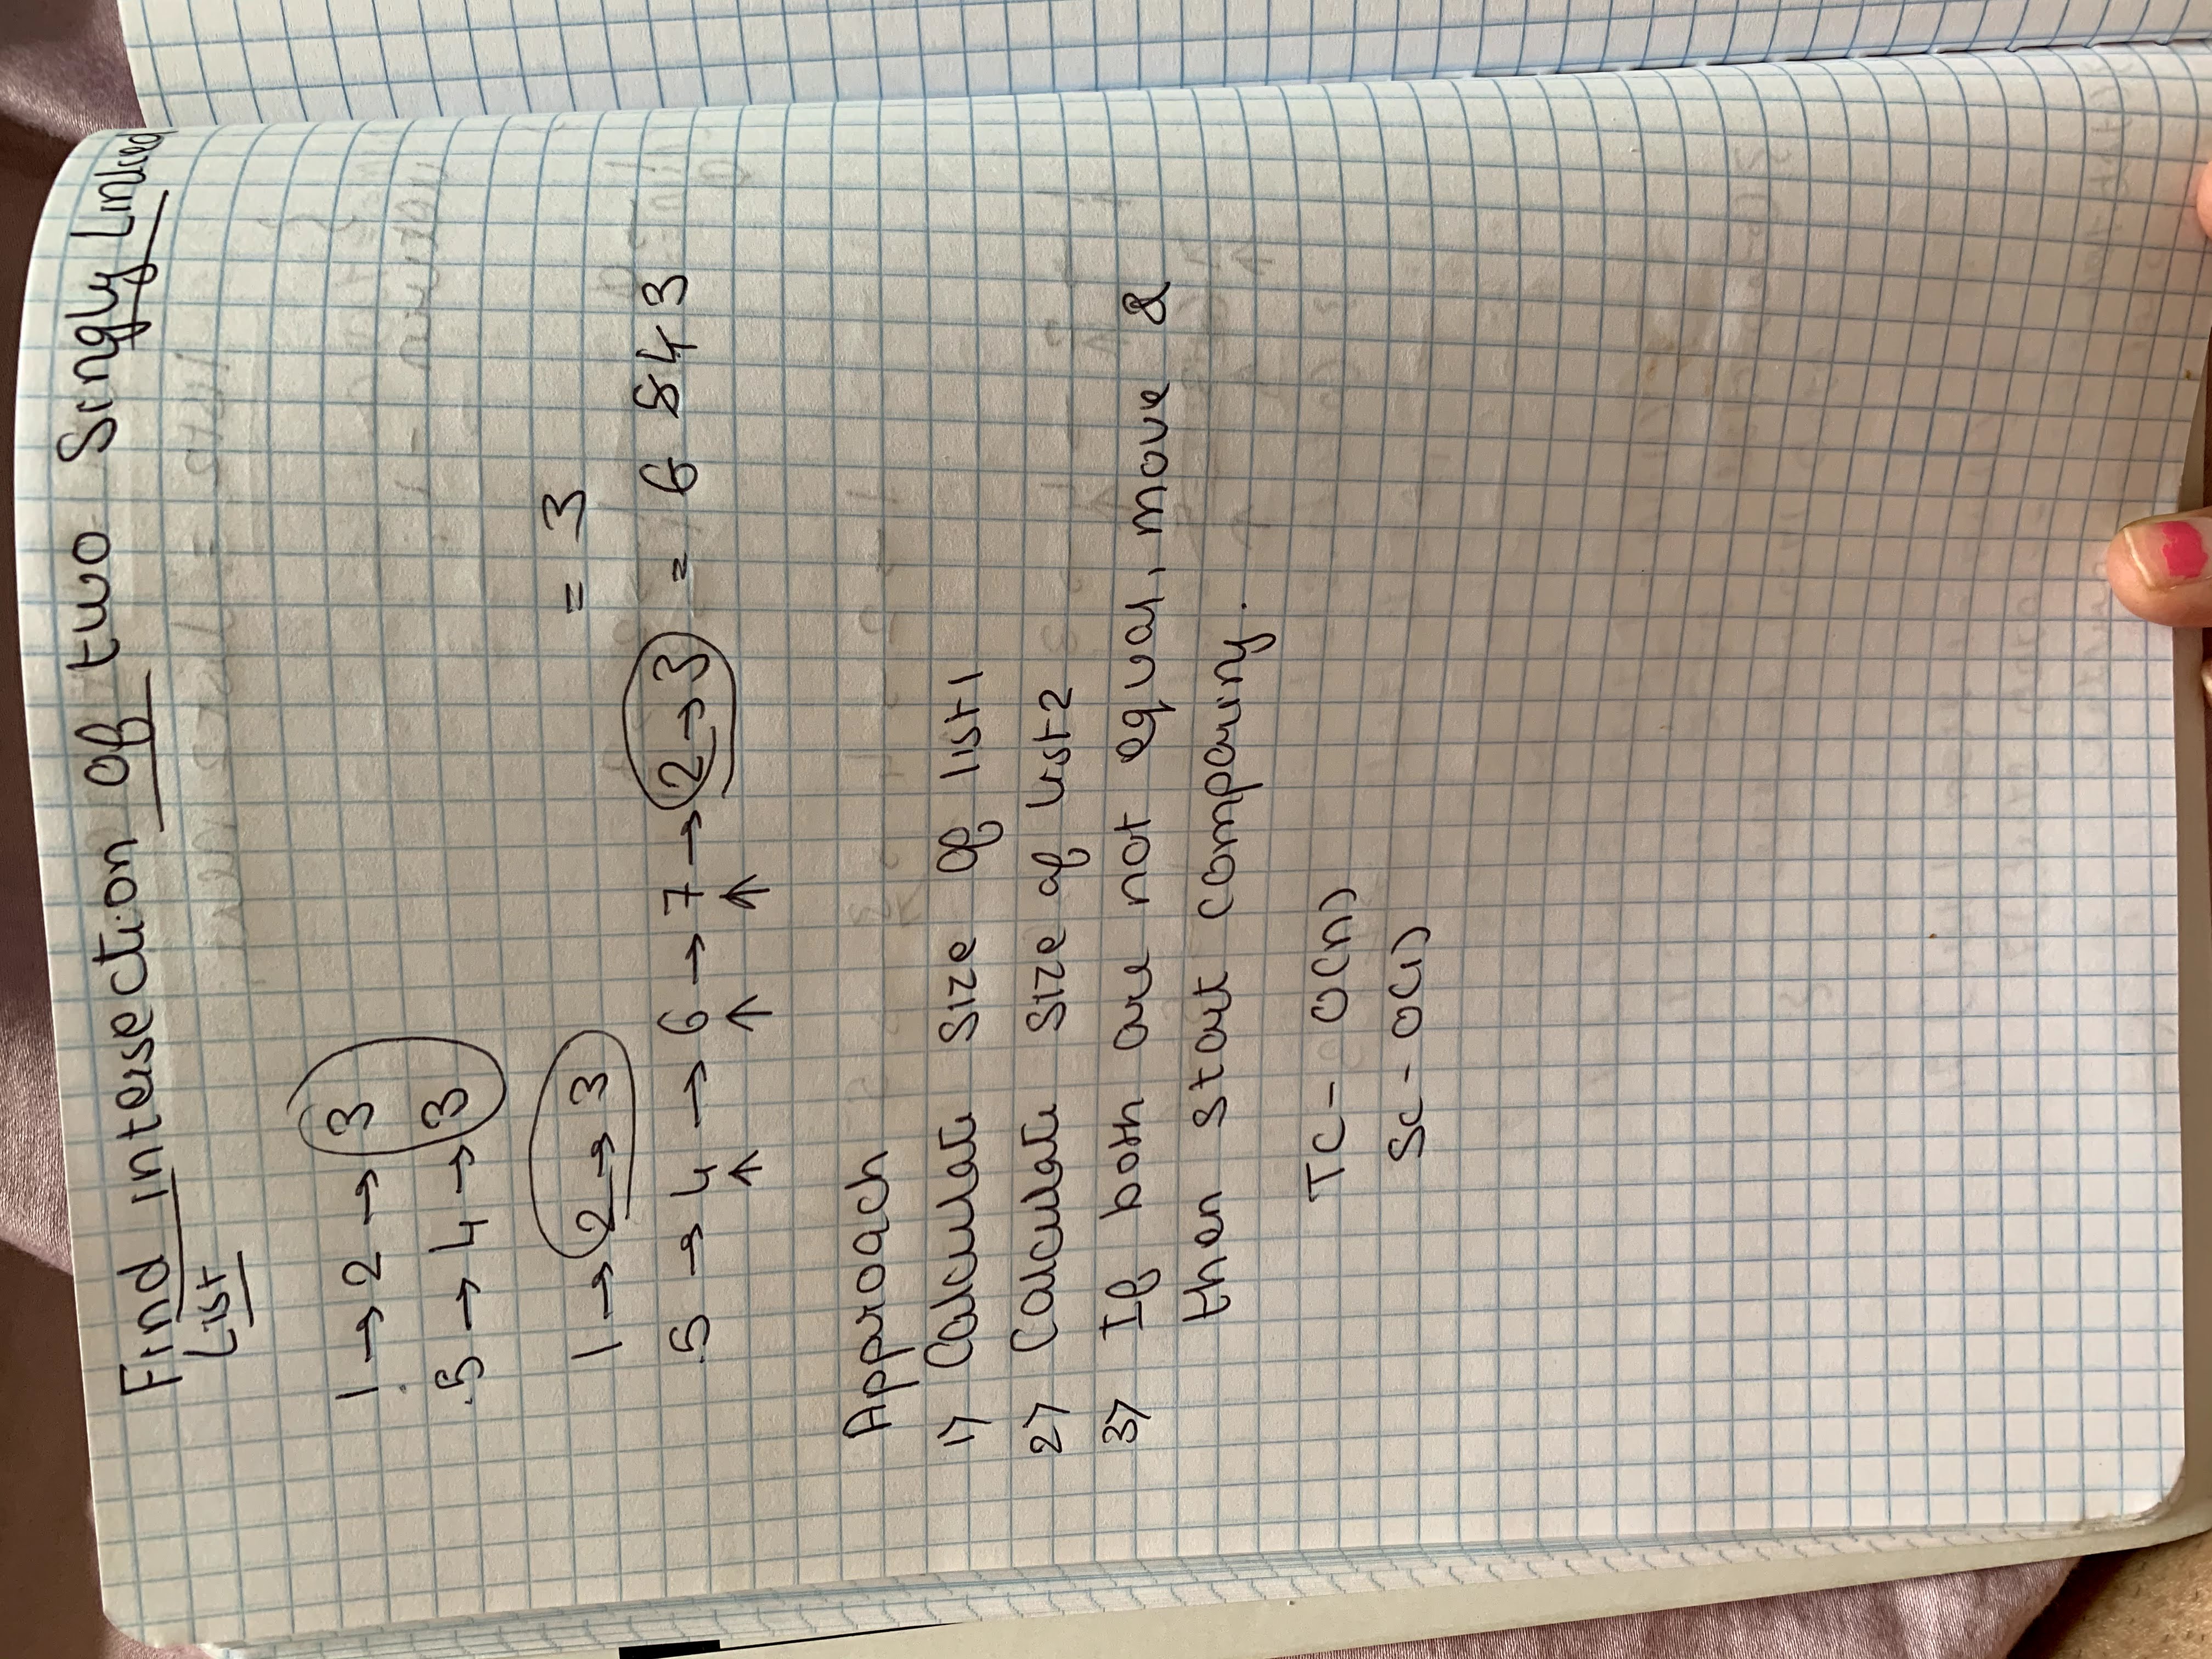 Find intersection of two Singly Linked
List
1 → 2 → 3
5 → 4 → 3
1 → 2 → 3 = 3
5 → 4 → 6 → 7 → 2 → 3 = 6 5 4 3
Approach
1) Calculate size of list1
2) Calculate size of list2
3) If both are not equal, move &
then start comparing.
TC - O(n)
SC - O(1)